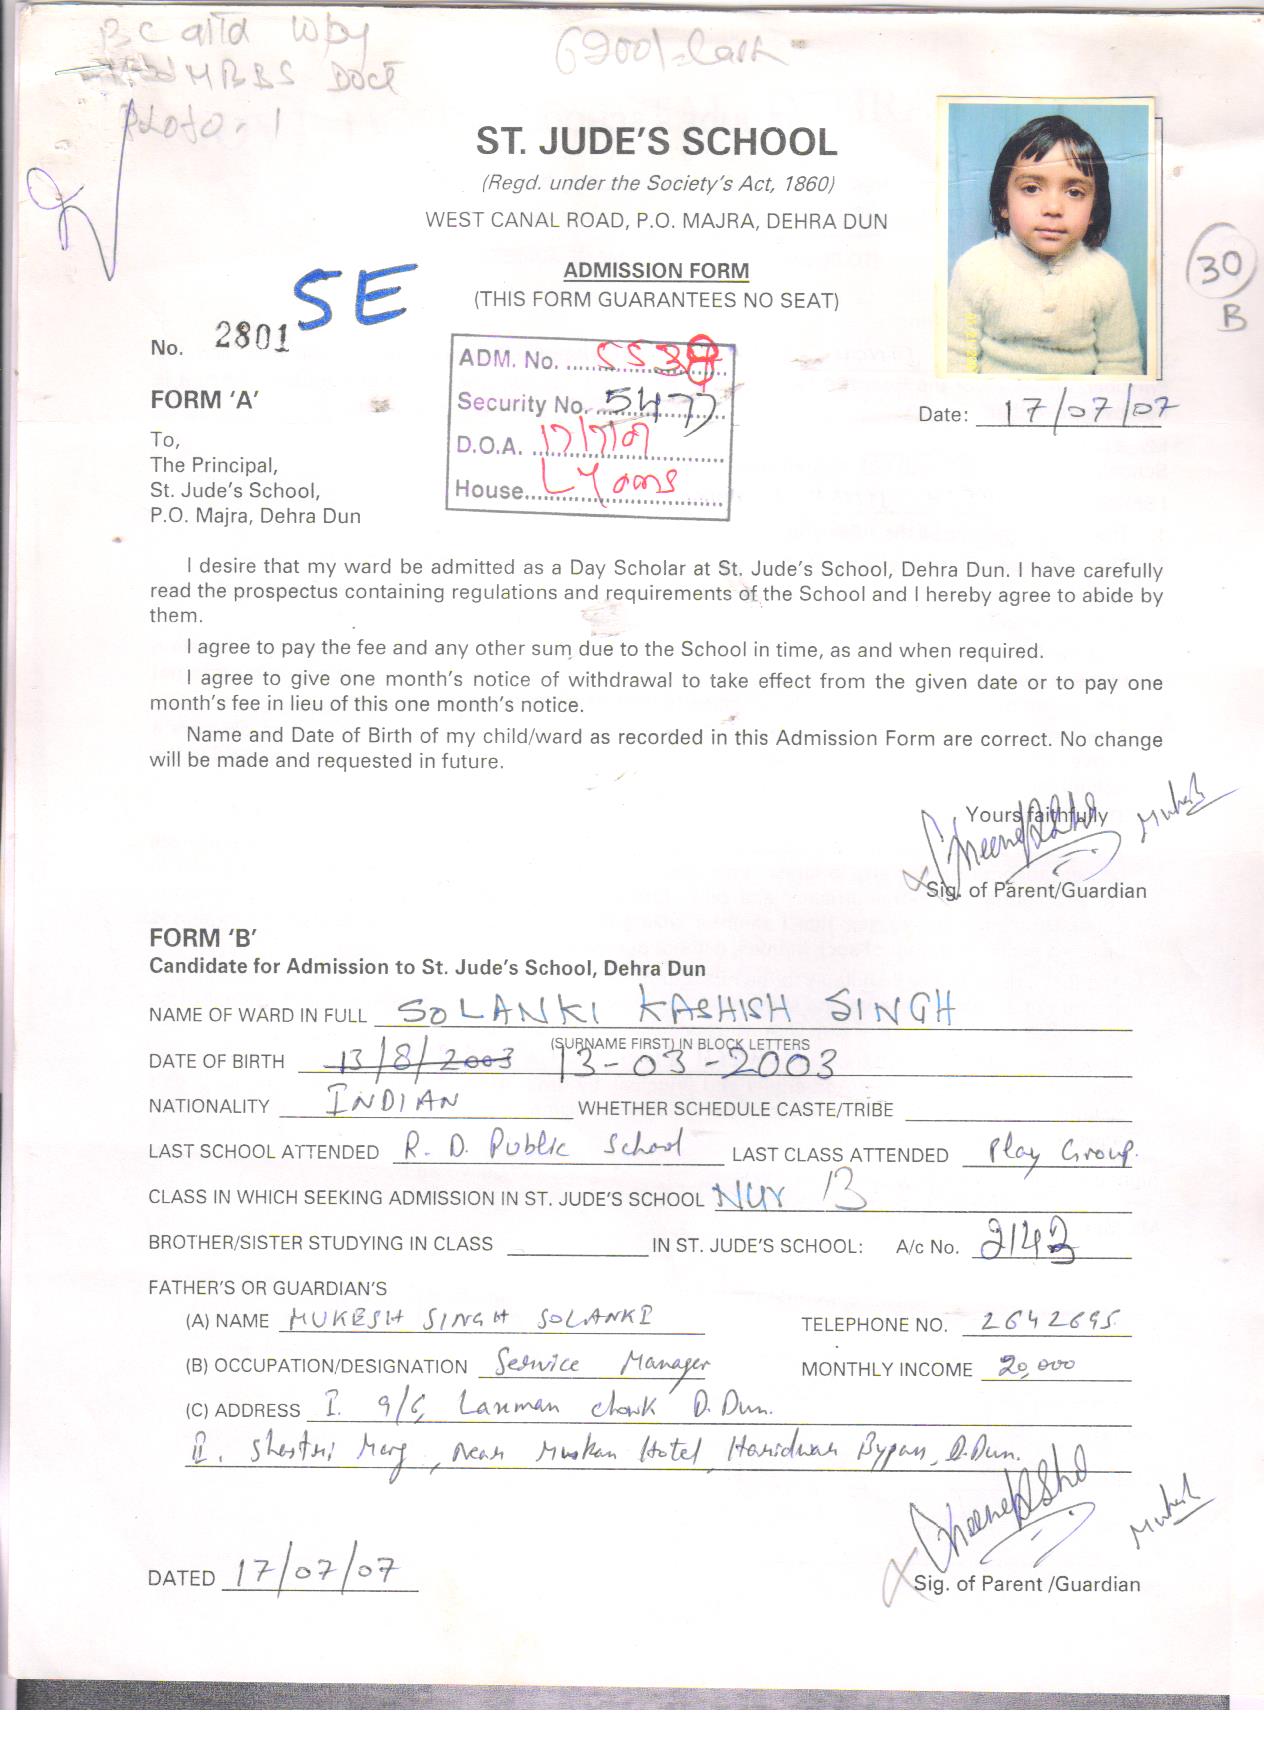 BC
MBBS Doct
Photo - 1
6200/- Cash
ST. JUDE'S SCHOOL
(Regd. under the Society's Act, 1860)
WEST CANAL ROAD, P.O. MAJRA, DEHRA DUN
ADMISSION FORM
(THIS FORM GUARANTEES NO SEAT)
SE
30
B
No. 2801
ADM. No.
Security No. 5477
D.O.A. 17/7/07
House Lyons
FORM 'A'
Date: 17/07/07
To,
The Principal,
St. Jude's School,
P.O. Majra, Dehra Dun
I desire that my ward be admitted as a Day Scholar at St. Jude's School, Dehra Dun. I have carefully
read the prospectus containing regulations and requirements of the School and I hereby agree to abide by
them.
I agree to pay the fee and any other sum due to the School in time, as and when required.
I agree to give one month's notice of withdrawal to take effect from the given date or to pay one
month's fee in lieu of this one month's notice.
Name and Date of Birth of my child/ward as recorded in this Admission Form are correct. No change
will be made and requested in future.
Yours faithfully
Mukesh
Sig. of Parent/Guardian
FORM 'B'
Candidate for Admission to St. Jude's School, Dehra Dun
NAME OF WARD IN FULL SOLANKI KASHISH SINGH
(SURNAME FIRST) IN BLOCK LETTERS
DATE OF BIRTH 13/8/2003 13-03-2003
NATIONALITY INDIAN WHETHER SCHEDULE CASTE/TRIBE
LAST SCHOOL ATTENDED R. D. Public School LAST CLASS ATTENDED Play Group.
CLASS IN WHICH SEEKING ADMISSION IN ST. JUDE'S SCHOOL NUR B
BROTHER/SISTER STUDYING IN CLASS IN ST. JUDE'S SCHOOL: A/c No. 2142
FATHER'S OR GUARDIAN'S
(A) NAME MUKESH SINGH SOLANKI TELEPHONE NO. 2642695
(B) OCCUPATION/DESIGNATION Service Manager MONTHLY INCOME 20,000
(C) ADDRESS I. 9/6, Laxman chowk D. Dun.
II. Shastri Marg, Near Muskan Hotel, Haridwar Bypass, D.Dun.
Mukesh
DATED 17/07/07
Sig. of Parent /Guardian